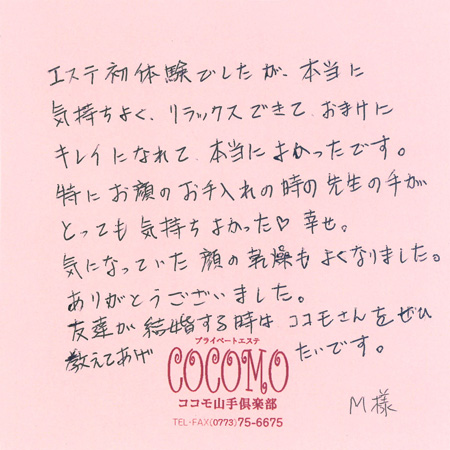 エステ初体験でしたが、本当に
気持ちよく、リラックスできて、おまけに
キレイになれて、本当によかったです。
特にお顔のお手入れの時の先生の手が
とっても気持ちよかった♡幸せ。
気になっていた顔の乾燥もよくなりました。
ありがとうございました。
友達が結婚する時はココモさんをぜひ
教えてあげ たいです。
プライベートエステ
COCOMO
ココモ山手倶楽部
TEL・FAX(0773)75-6675
M様